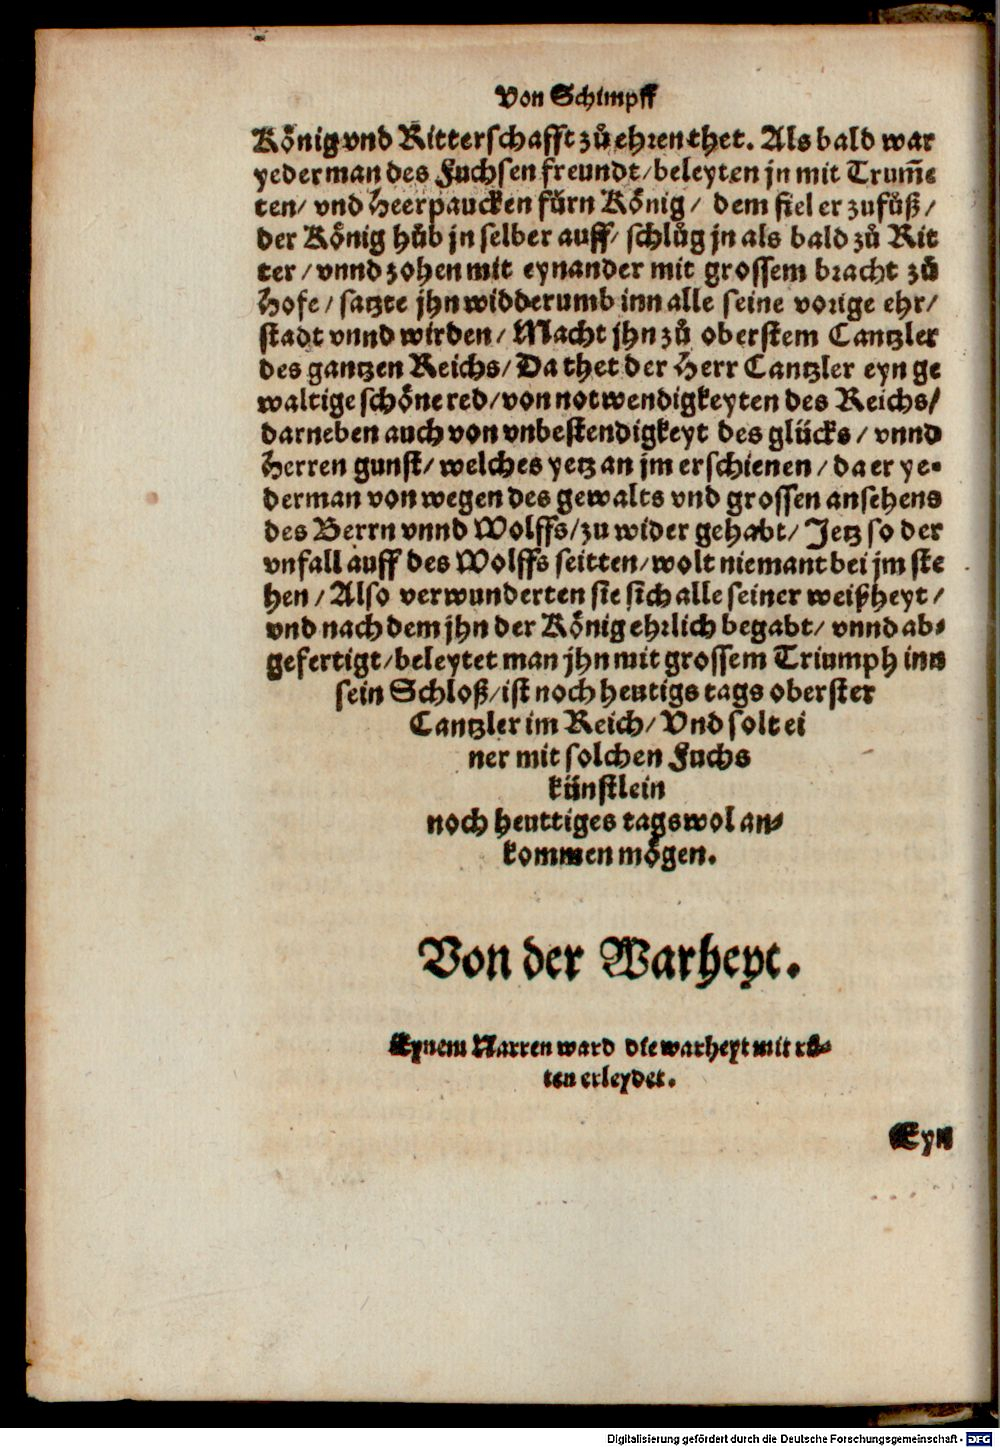 Von Schimpff
Koͤnig vnd Ritterschafft zuͦ ehren thet. Als bald war
yederman des Fuchsen freundt/ beleyten jn mit Trum̅e
ten/ vnd Heerpaucken fuͤrn Koͤnig/ dem fiel er zufuͤß/
der Koͤnig huͦb jn selber auff/ schluͦg jn als bald zuͦ Rit
ter/ vnnd zohen mit eynander mit grossem bracht zuͦ
Hofe/ satzte jhn widderumb inn alle seine vorige ehr/
stadt vnnd wirden/ Macht jhn zuͦ oberstem Cantzler
des gantzen Reichs/ Da thet der Herr Cantzler eyn ge
waltige schoͤne red/ von notwendigkeyten des Reichs/
darneben auch von vnbestendigkeyt des gluͤcks/ vnnd
Herren gunst/ welches yetz an jm erschienen/ da er ye-
derman von wegen des gewalts vnd grossen ansehens
des Berrn vnnd Wolffs/ zu wider gehabt/ Jetz so der
vnfall auff des Wolffs seitten/ wolt niemant bei jm ste
hen/ Also verwunderten sie sich alle seiner weißheyt/
vnd nach dem jhn der Koͤnig ehrlich begabt/ vnnd ab-
gefertigt/ beleytet man jhn mit grossem Triumph inn
sein Schloß/ ist noch heutigs tags oberster
Cantzler im Reich/ Vnd solt ei
ner mit solchen Fuchs
kuͤnstlein
noch heuttiges tags wol an-
kommen moͤgen.
Von der Warheyt.
Eynem Narren ward die warheyt mit ruͦ-
ten erleydet.
Eyn
Digitalisierung gefördert durch die Deutsche Forschungsgemeinschaft - DFG